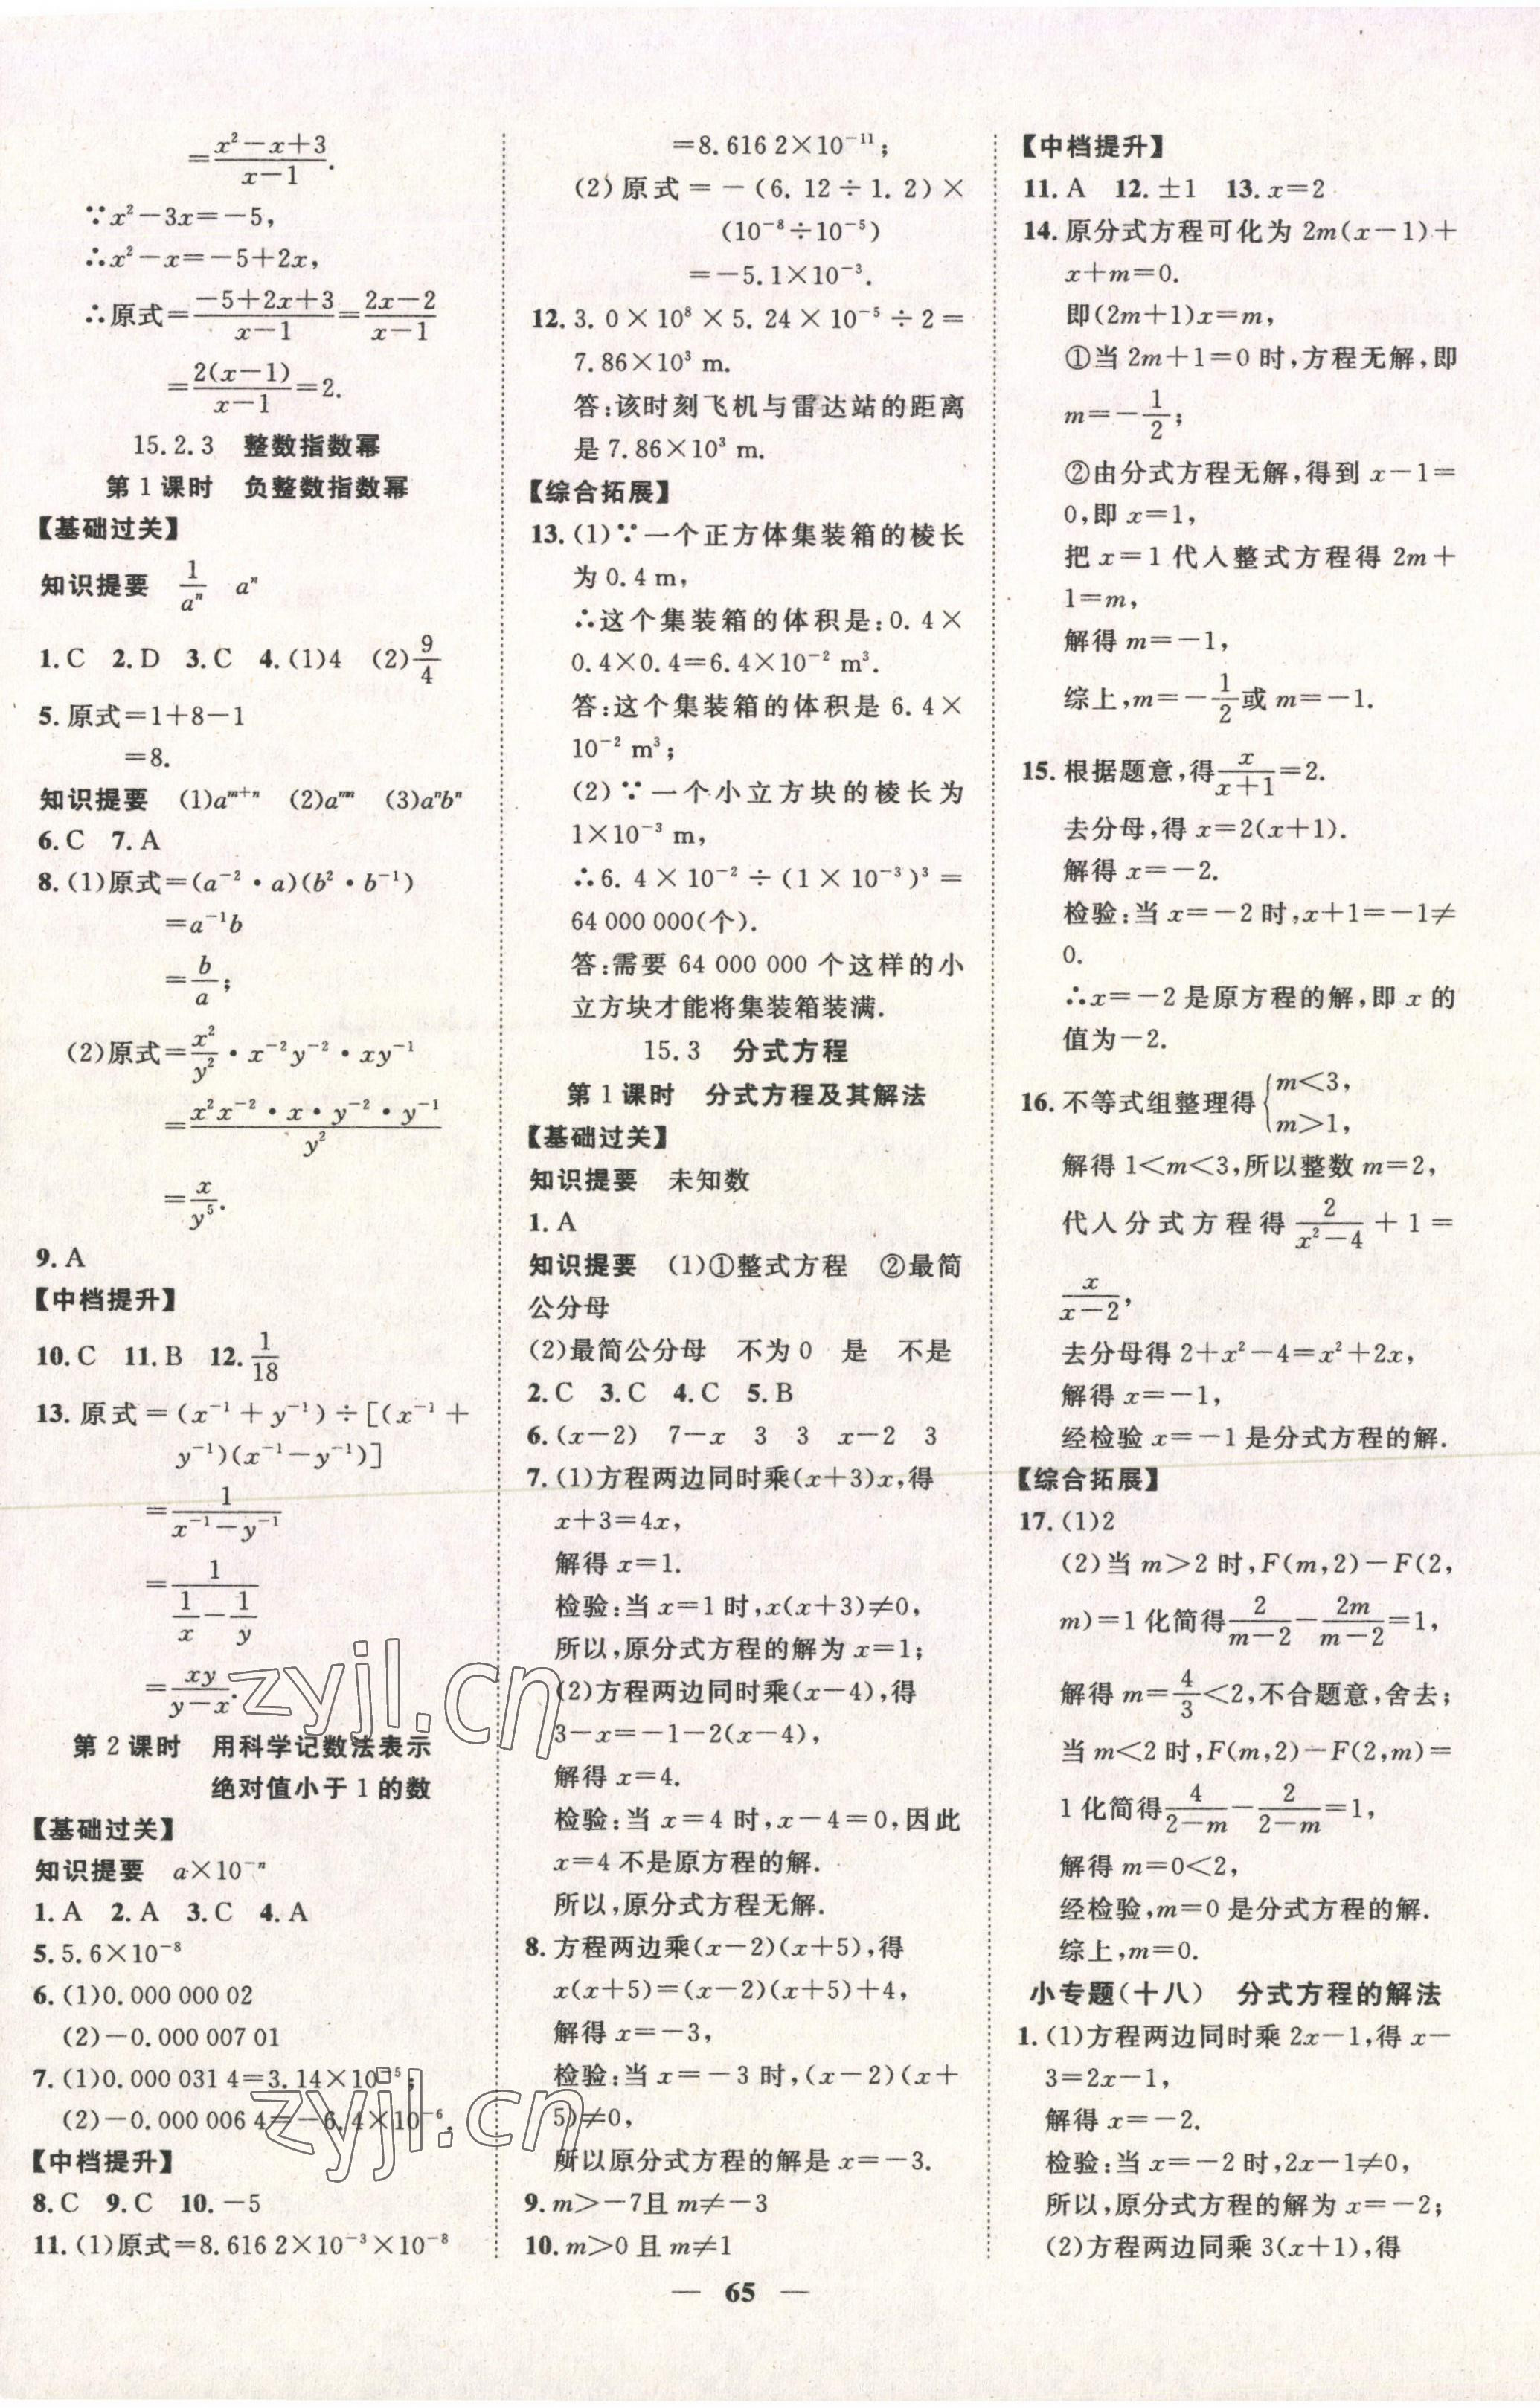 =\frac{x²-x+3}{x-1}.
∵x²-3x=-5,
∴x²-x=-5+2x,
∴原式=\frac{-5+2x+3}{x-1}=\frac{2x-2}{x-1}
=\frac{2(x-1)}{x-1}=2.
15.2.3 整数指数幂
第1课时 负整数指数幂
【基础过关】
知识提要 \frac{1}{aⁿ} aⁿ
1.C 2.D 3.C 4.(1)4 (2)\frac{9}{4}
5.原式=1+8-1
=8.
知识提要 (1)a^{m+n} (2)a^{mn} (3)aⁿbⁿ
6.C 7.A
8.(1)原式=(a⁻²·a)(b²·b⁻¹)
=a⁻¹b
=\frac{b}{a};
(2)原式=\frac{x²}{y²}·x⁻²y⁻²·xy⁻¹
=\frac{x²x⁻²·x·y⁻²·y⁻¹}{y²}
=\frac{x}{y⁵}.
9.A
【中档提升】
10.C 11.B 12.\frac{1}{18}
13.原式=(x⁻¹+y⁻¹)÷[(x⁻¹+
y⁻¹)(x⁻¹-y⁻¹)]
=\frac{1}{x⁻¹-y⁻¹}
=\frac{1}{\frac{1}{x}-\frac{1}{y}}
=\frac{xy}{y-x}.
第2课时 用科学记数法表示
绝对值小于1的数
【基础过关】
知识提要 a×10⁻ⁿ
1.A 2.A 3.C 4.A
5.5.6×10⁻⁸
6.(1)0.000 000 02
(2)-0.000 007 01
7.(1)0.000 031 4=3.14×10⁻⁵;
(2)-0.000 006 4=-6.4×10⁻⁶.
【中档提升】
8.C 9.C 10.-5
11.(1)原式=8.616 2×10⁻³×10⁻⁸
=8.616 2×10⁻¹¹;
(2)原式=-(6.12÷1.2)×
(10⁻⁸÷10⁻⁵)
=-5.1×10⁻³.
12.3.0×10⁸×5.24×10⁻⁵÷2=
7.86×10³ m.
答:该时刻飞机与雷达站的距离
是7.86×10³ m.
【综合拓展】
13.(1)∵一个正方体集装箱的棱长
为0.4 m,
∴这个集装箱的体积是:0.4×
0.4×0.4=6.4×10⁻² m³.
答:这个集装箱的体积是6.4×
10⁻² m³;
(2)∵一个小立方块的棱长为
1×10⁻³ m,
∴6.4×10⁻²÷(1×10⁻³)³=
64 000 000(个).
答:需要64 000 000个这样的小
立方块才能将集装箱装满.
15.3 分式方程
第1课时 分式方程及其解法
【基础过关】
知识提要 未知数
1.A
知识提要 (1)①整式方程 ②最简
公分母
(2)最简公分母 不为0 是 不是
2.C 3.C 4.C 5.B
6.(x-2) 7-x 3 3 x-2 3
7.(1)方程两边同时乘(x+3)x,得
x+3=4x,
解得x=1.
检验:当x=1时,x(x+3)≠0,
所以,原分式方程的解为x=1;
(2)方程两边同时乘(x-4),得
3-x=-1-2(x-4),
解得x=4.
检验:当x=4时,x-4=0,因此
x=4不是原方程的解.
所以,原分式方程无解.
8.方程两边乘(x-2)(x+5),得
x(x+5)=(x-2)(x+5)+4,
解得x=-3,
检验:当x=-3时,(x-2)(x+
5)≠0,
所以原分式方程的解是x=-3.
9.m>-7且m≠-3
10.m>0且m≠1
【中档提升】
11.A 12.±1 13.x=2
14.原分式方程可化为2m(x-1)+
x+m=0.
即(2m+1)x=m,
①当2m+1=0时,方程无解,即
m=-\frac{1}{2};
②由分式方程无解,得到x-1=
0,即x=1,
把x=1代入整式方程得2m+
1=m,
解得m=-1,
综上,m=-\frac{1}{2}或m=-1.
15.根据题意,得\frac{x}{x+1}=2.
去分母,得x=2(x+1).
解得x=-2.
检验:当x=-2时,x+1=-1≠
0.
∴x=-2是原方程的解,即x的
值为-2.
16.不等式组整理得{m<3,
m>1,
解得1<m<3,所以整数m=2,
代入分式方程得\frac{2}{x²-4}+1=
\frac{x}{x-2},
去分母得2+x²-4=x²+2x,
解得x=-1,
经检验x=-1是分式方程的解.
【综合拓展】
17.(1)2
(2)当m>2时,F(m,2)-F(2,
m)=1化简得\frac{2}{m-2}-\frac{2m}{m-2}=1,
解得m=\frac{4}{3}<2,不合题意,舍去;
当m<2时,F(m,2)-F(2,m)=
1化简得\frac{4}{2-m}-\frac{2}{2-m}=1,
解得m=0<2,
经检验,m=0是分式方程的解.
综上,m=0.
小专题(十八) 分式方程的解法
1.(1)方程两边同时乘2x-1,得x-
3=2x-1,
解得x=-2.
检验:当x=-2时,2x-1≠0,
所以,原分式方程的解为x=-2;
(2)方程两边同乘3(x+1),得
— 65 —
zyjl.cn
zyjl.cn